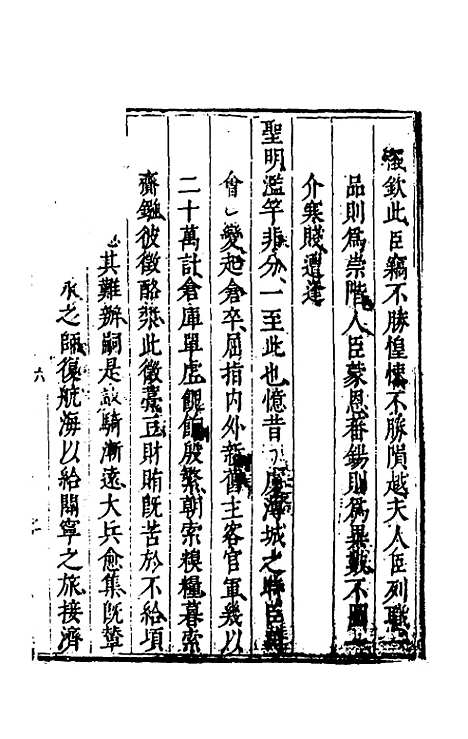 欽此臣竊不勝惶悚不勝隕越夫人臣列職
品則為崇階人臣蒙恩番錫則為異數不圖
介寒賤遭逢
聖明濫竽非分一至此也憶昔 海城之
變起倉卒屈指內外新舊主客官軍幾以
二十萬計倉庫單虛餼餉殷繁朝索糗糧暮索
齋鹽彼徵酪漿此徵藁豆財賄既苦於不給頃
其難辦嗣是敵騎漸遠大兵愈集既輦
永之師復航海以給關寧之旅接濟
六